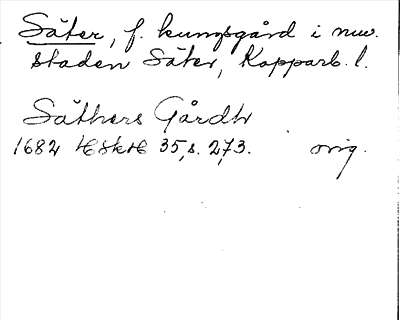 Säter, f. kungsgård i nuv.
staden Säter, Kopparb. l.
Säthers Gårdh
1682 HSkH 35, s. 273. orig.